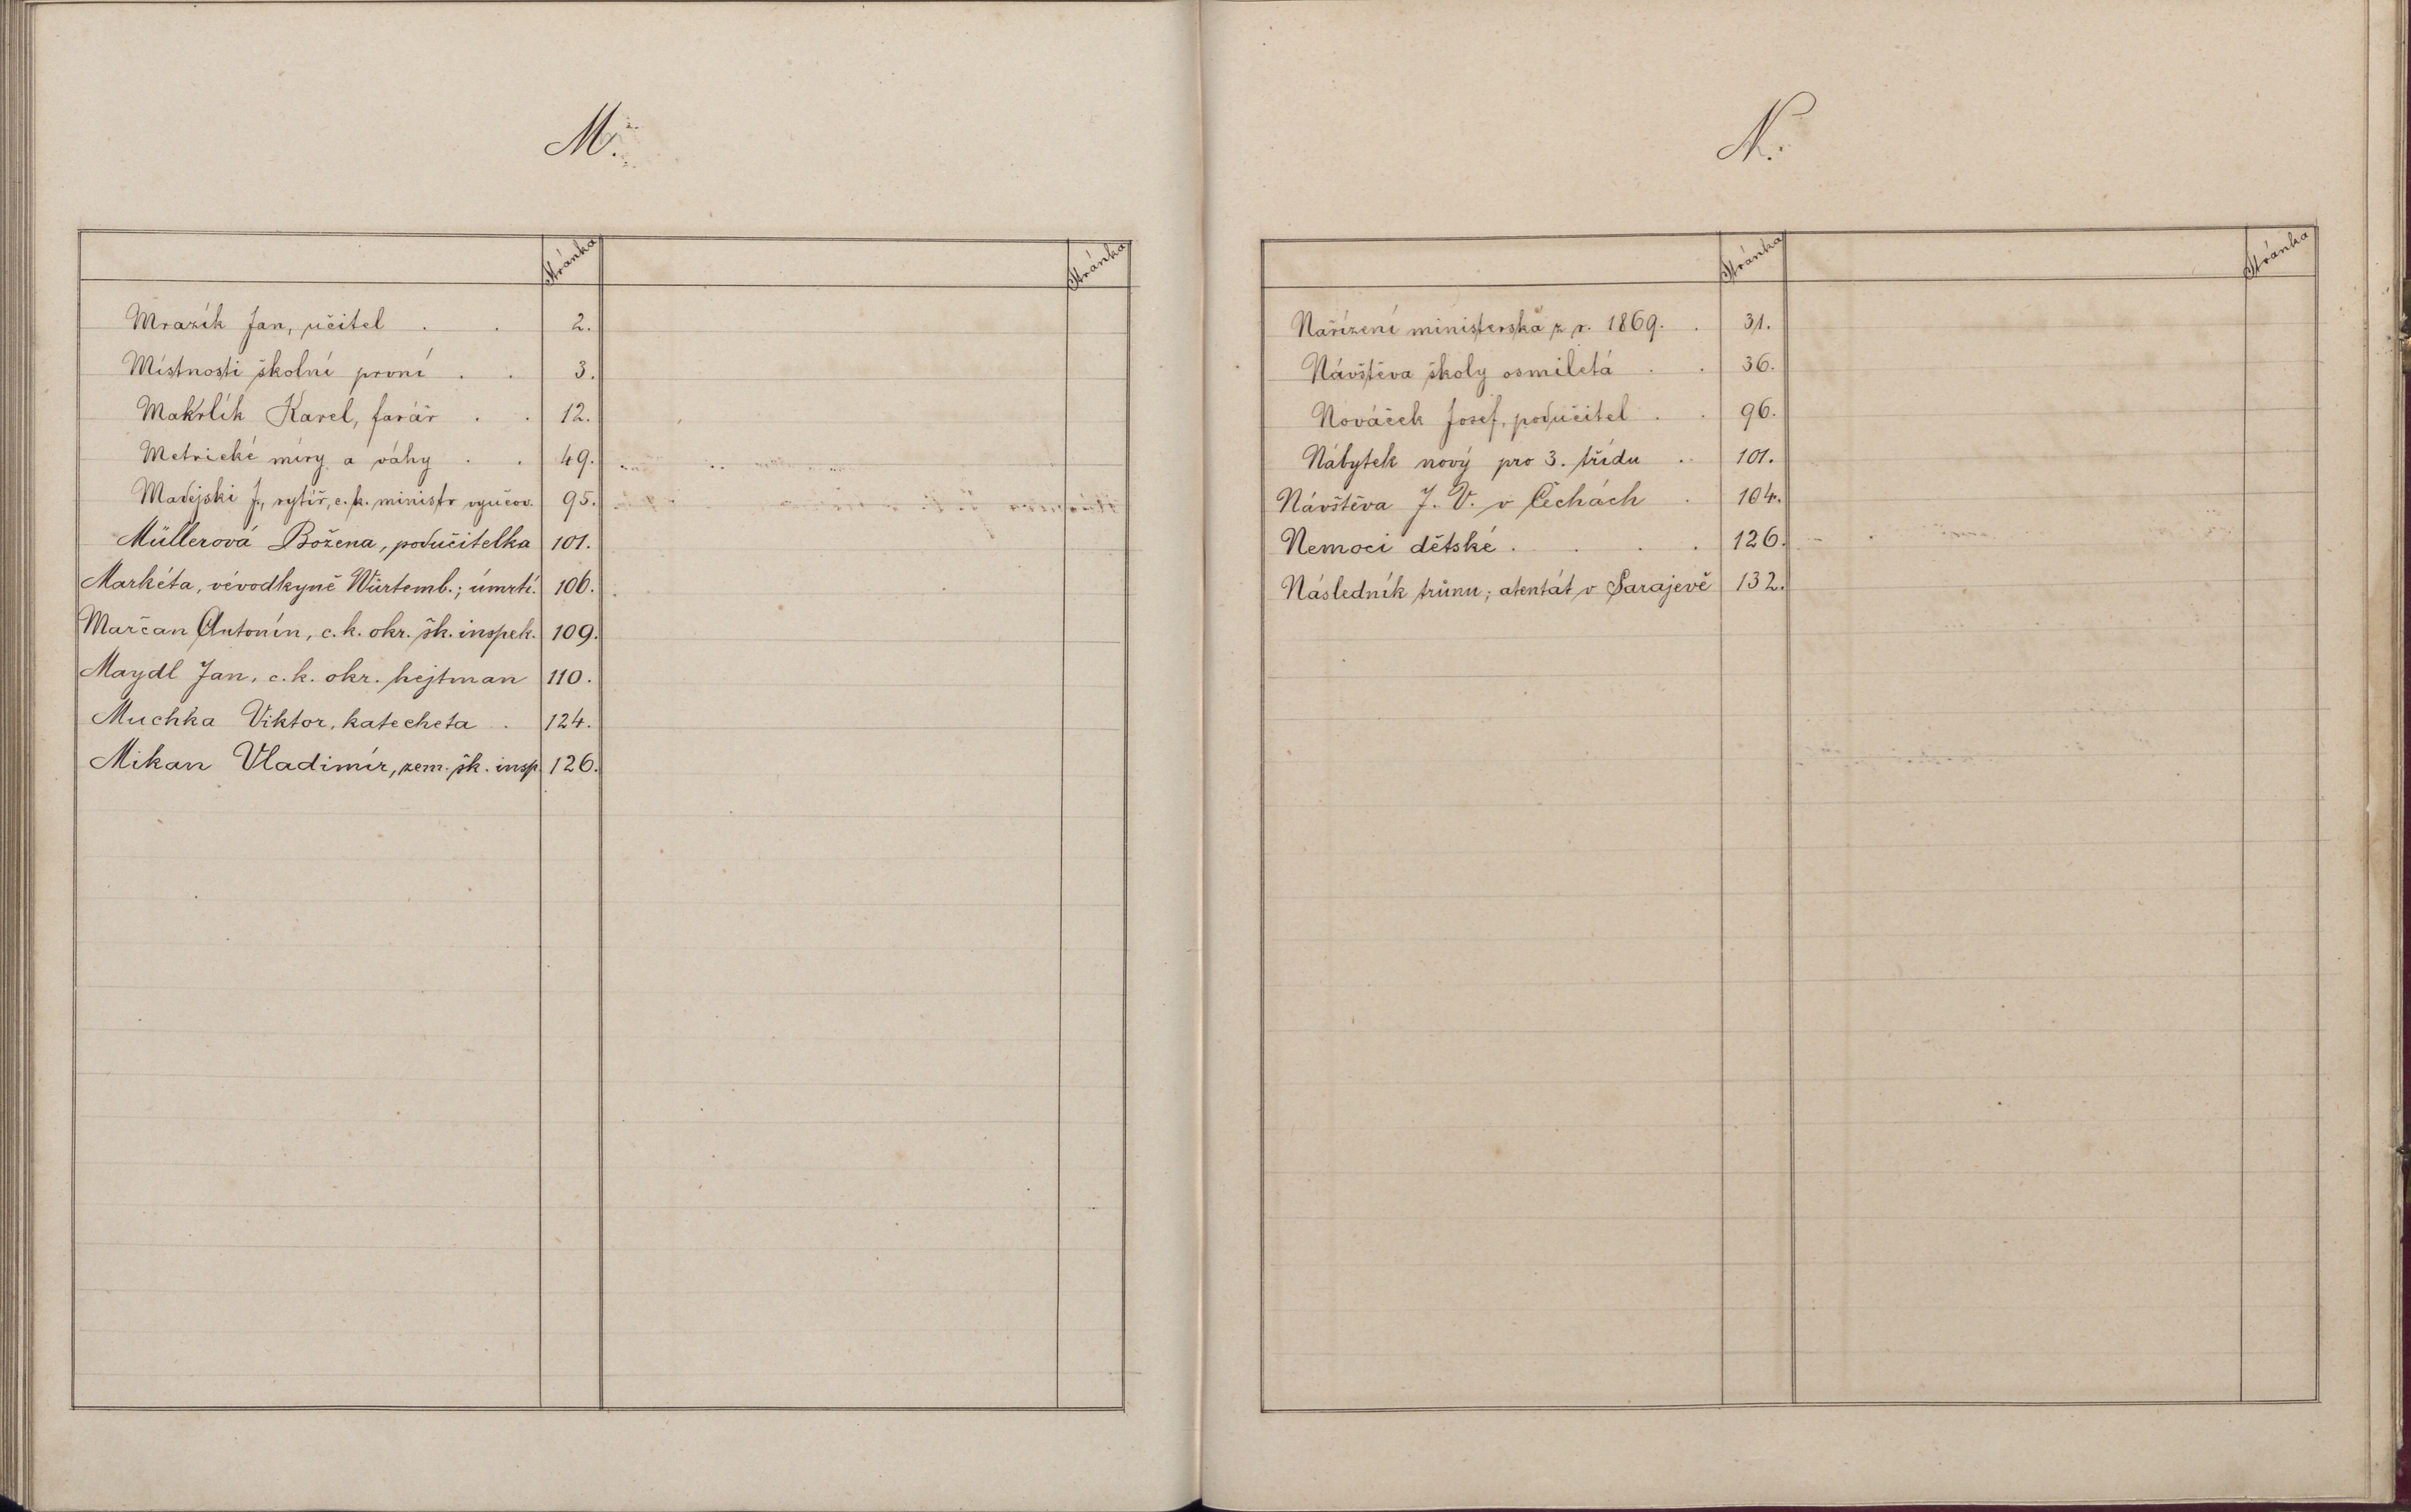 M.
Stránka
Stránka
Mrazík Jan, učitel . . 2.
Místnosti školní první . . 3.
Makrlík Karel, farář . . 12.
Metrické míry a váhy . . 49.
Madejski J., rytíř, c. k. ministr vyučov. 95.
Müllerová Božena, podučitelka 101.
Markéta, vévodkyně Würtemb.; úmrtí. 106.
Marčan Antonín, c. k. okr. šk. inspek. 109.
Maydl Jan, c. k. okr. hejtman 110.
Muchka Viktor, katecheta . 124.
Mikan Vladimír, zem. šk. insp. 126.
N.
Stránka
Stránka
Nařízení ministerská z r. 1869. . 31.
Návštěva školy osmiletá . . 36.
Nováček Josef, podučitel . . 96.
Nábytek nový pro 3. třídu . . 101.
Návštěva J. V. v Čechách . 104.
Nemoci dětské . . . . 126.
Následník trůnu; atentát v Sarajevě 132.